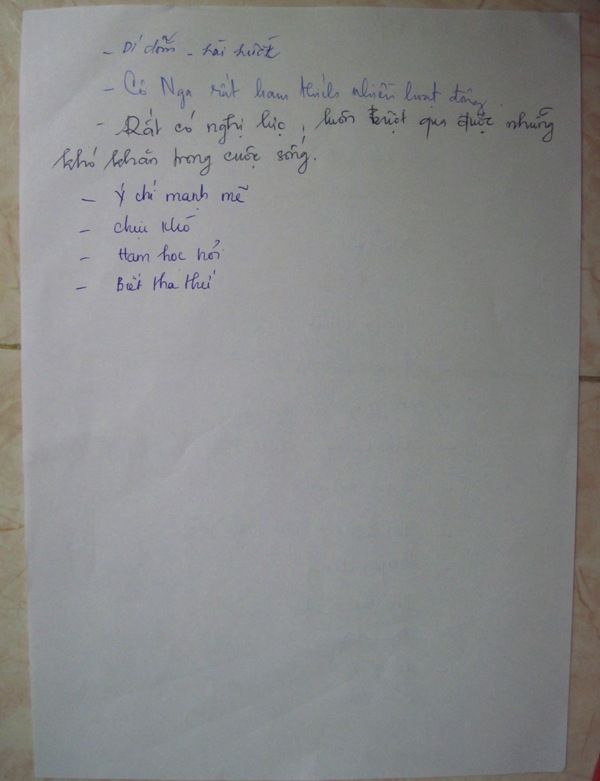 - Dí dỏm - hài hước
- Cô Nga rất ham thích nhiều hoạt động.
- Rất có nghị lực, luôn vượt qua được những
khó khăn trong cuộc sống.
- Ý chí mạnh mẽ
- chịu khó
- Ham học hỏi
- Biết tha thứ